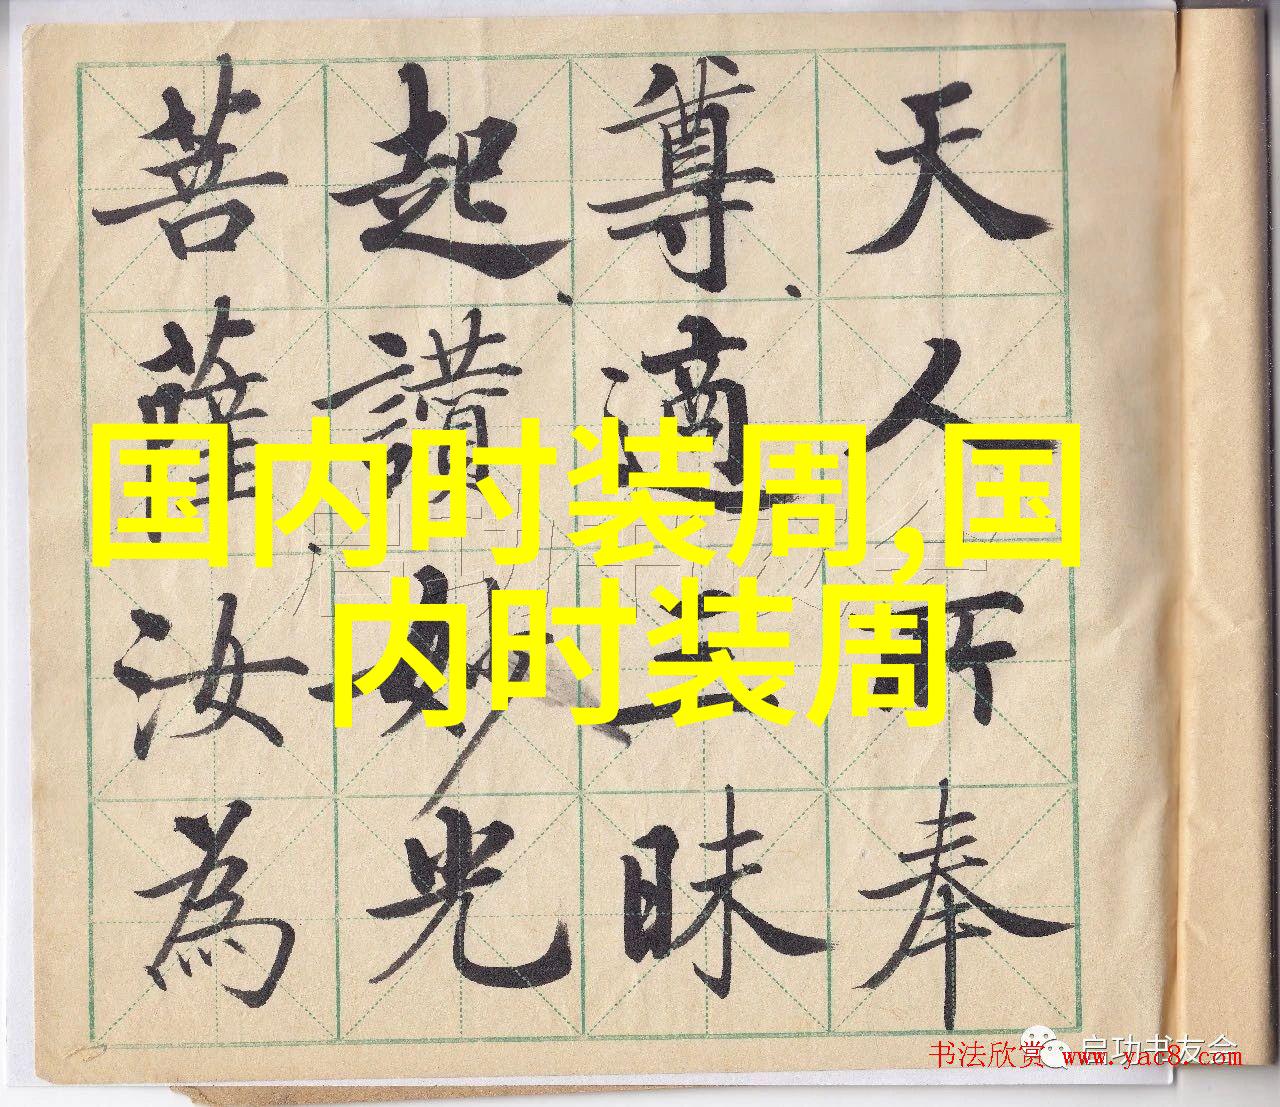 天人所奉
尊適三昧
起讃妙光
菩薩汝為
国内时装周,国
内时装周
启功书友会
书法欣赏 www.yac8.com